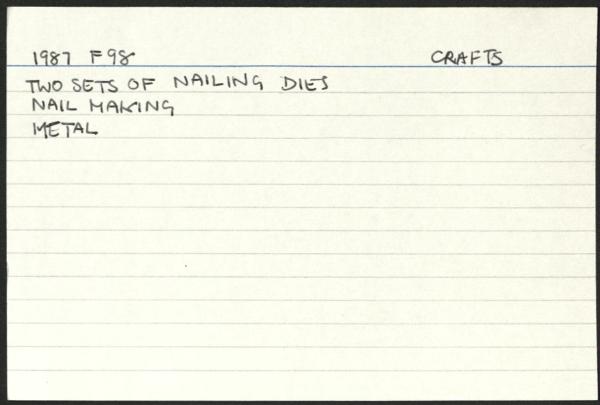 1987 F98 CRAFTS
TWO SETS OF NAILING DIES
NAIL MAKING
METAL